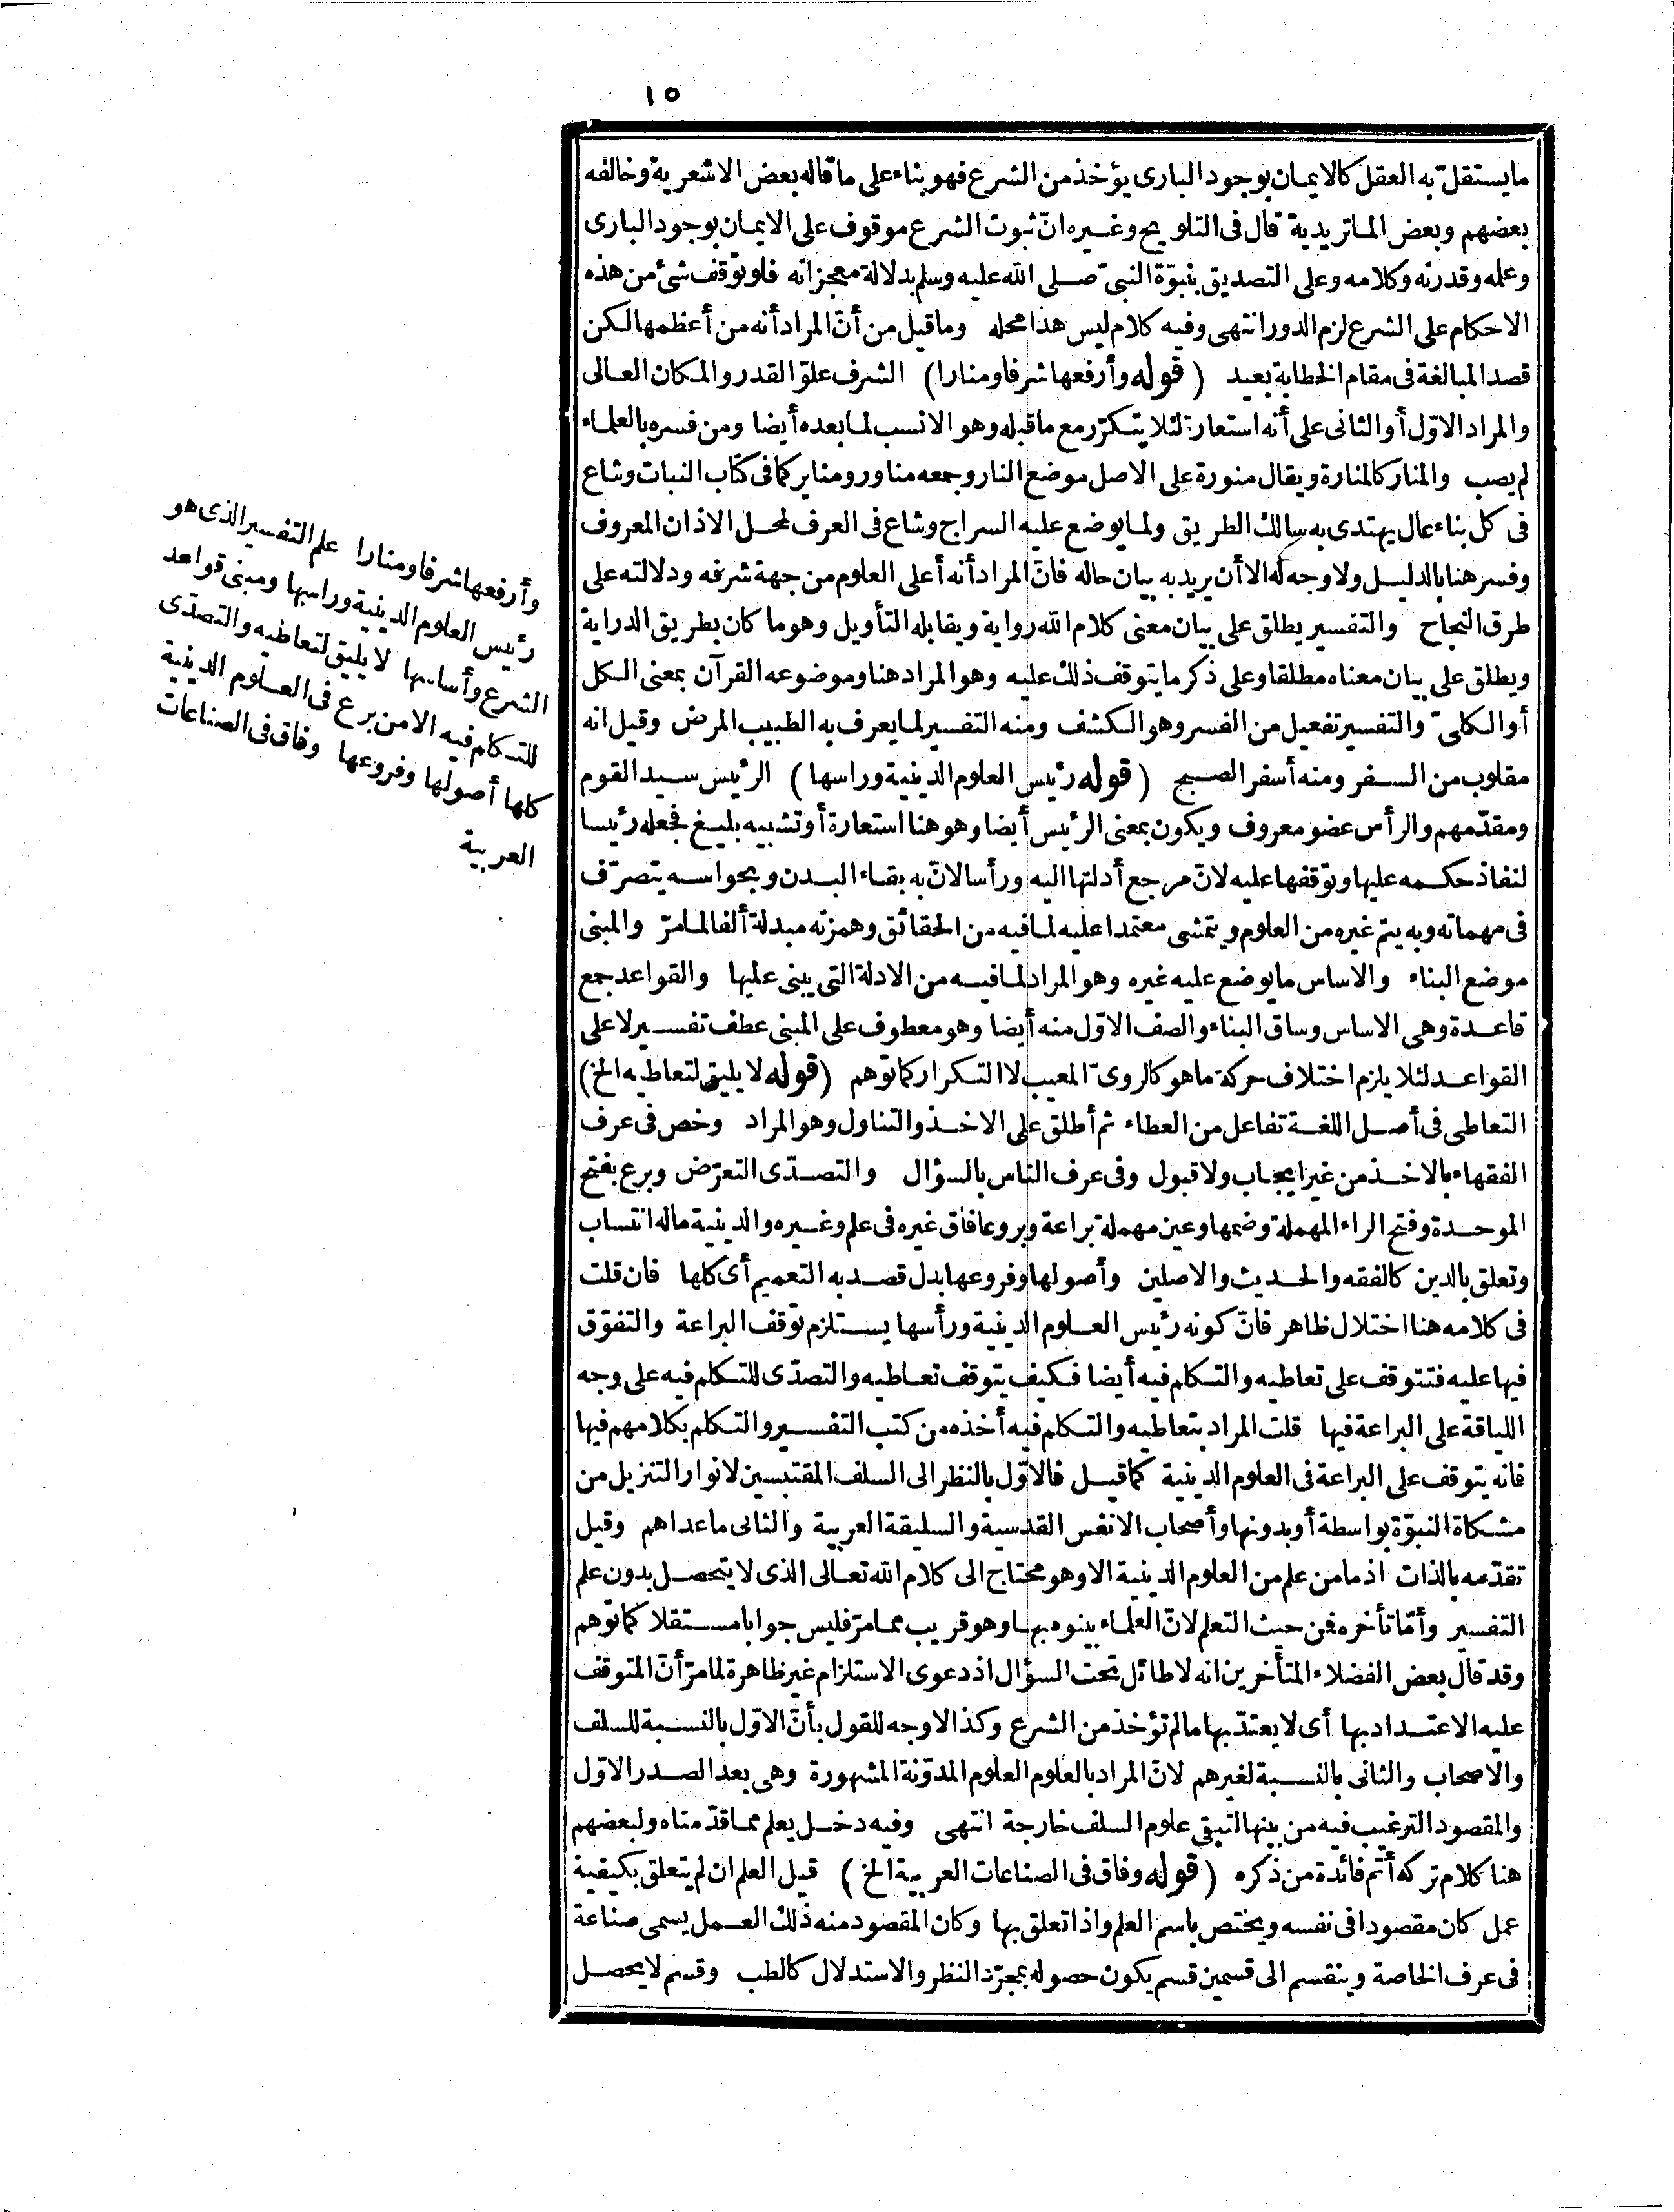 ١٥
ما يستقلّ به العقل كالايمان بوجود البارى يؤخذ من الشرع فهو بناء على ما قاله بعض الاشعرية وخالفه
بعضهم وبعض الماتريدية قال فى التلويح وغيره انّ ثبوت الشرع موقوف على الايمان بوجود البارى
وعلمه وقدرته وكلامه وعلى التصديق بنبوّة النبىّ صلى الله عليه وسلم بدلالة معجزاته فلو توقف شئ من هذه
الاحكام على الشرع لزم الدور انتهى وفيه كلام ليس هذا محله وما قيل من أنّ المراد أنه من أعظمها لكن
قصد المبالغة فى مقام الخطابة بعيد (قوله وأرفعها شرفا ومنارا) الشرف علوّ القدر والمكان العالى
والمراد الاوّل أو الثانى على أنه استعارة لئلا يتكرّر مع ما قبله وهو الانسب لما بعده أيضا ومن فسره بالعلماء
لم يصب والمنار كالمنارة ويقال منورة على الاصل موضع النار وجمعه مناور ومناير كما فى كتاب النبات وشاع
فى كل بناء عال يهتدى به سالك الطريق ولما يوضع عليه السراج وشاع فى العرف لمحل الاذان المعروف
وفسر هنا بالدليل ولا وجه له الا أن يريد به بيان حاله فانّ المراد أنه أعلى العلوم من جهة شرفه ودلالته على
طرق النجاح والتفسير يطلق على بيان معنى كلام الله رواية ويقابله التأويل وهو ما كان بطريق الدراية
ويطلق على بيان معناه مطلقا وعلى ذكر ما يتوقف ذلك عليه وهو المراد هنا وموضوعه القرآن بمعنى الكل
أو الكلىّ والتفسير تفعيل من الفسر وهو الكشف ومنه التفسير لما يعرف به الطبيب المرض وقيل انه
مقلوب من السفر ومنه أسفر الصبح (قوله رئيس العلوم الدينية وراسها) الرئيس سيد القوم
ومقدّمهم والرأس عضو معروف ويكون بمعنى الرئيس أيضا وهو هنا استعارة أو تشبيه بليغ فجعله رئيسا
لنفاذ حكمه عليها وتوقفها عليه لانّ مرجع أدلتها اليه ورأسا لانّ به بقاء البدن وبحواسه يتصرّف
فى مهماته وبه يتم غيره من العلوم ويتمشى معتمدا عليه لما فيه من الحقائق وهمزته مبدلة ألفا لما مرّ والمبنى
موضع البناء والاساس ما يوضع عليه غيره وهو المراد لما فيه من الادلة التى يبنى عليها والقواعد جمع
قاعدة وهى الاساس وساق البناء والصف الاوّل منه أيضا وهو معطوف على المبنى عطف تفسير لا على
القواعد لئلا يلزم اختلاف حركة ما هو كالروىّ المعيب لا التكرار كما توهم (قوله لا يليق لتعاطيه الخ)
التعاطى فى أصل اللغة تفاعل من العطاء ثم أطلق على الاخذ والتناول وهو المراد وخص فى عرف
الفقهاء بالاخذ من غير ايجاب ولا قبول وفى عرف الناس بالسؤال والتصدّى التعرّض وبرع بفتح
الموحدة وفتح الراء المهملة وضمها وعين مهملة براعة وبروعا فاق غيره فى علم وغيره والدينية ماله انتساب
وتعلق بالدين كالفقه والحديث والاصلين وأصولها وفروعها بدل قصد به التعميم أى كلها فان قلت
فى كلامه هنا اختلال ظاهر فانّ كونه رئيس العلوم الدينية ورأسها يستلزم توقف البراعة والتفوّق
فيها عليه فتتوقف على تعاطيه والتكلم فيه أيضا فكيف يتوقف تعاطيه والتصدّى للتكلم فيه على وجه
اللياقة على البراعة فيها قلت المراد بتعاطيه والتكلم فيه أخذه من كتب التفسير والتكلم بكلامهم فيها
فانه يتوقف على البراعة فى العلوم الدينية كما قيل فالاوّل بالنظر الى السلف المقتبسين لانوار التنزيل من
مشكاة النبوّة بواسطة أو بدونها وأصحاب الانفس القدسية والسليقة العربية والثانى ما عداهم وقيل
تقدّمه بالذات اذ ما من علم من العلوم الدينية الا وهو محتاج الى كلام الله تعالى الذى لا يتحصل بدون علم
التفسير وأمّا تأخره فمن حيث التعلم لانّ العلماء بينوه بها وهو قريب مما مرّ فليس جوابا مستقلا كما توهم
وقد قال بعض الفضلاء المتأخرين انه لا طائل تحت السؤال اذ دعوى الاستلزام غير ظاهرة لما مرّ أنّ المتوقف
عليه الاعتداد بها أى لا يعتدّ بها ما لم تؤخذ من الشرع وكذا لا وجه للقول بأنّ الاوّل بالنسبة للسلف
والاصحاب والثانى بالنسبة لغيرهم لانّ المراد بالعلوم العلوم المدوّنة المشهورة وهى بعد الصدر الاوّل
والمقصود الترغيب فيه من بينها لتبقى علوم السلف خارجة انتهى وفيه دخل يعلم مما قدّمناه ولبعضهم
هنا كلام تركه أتم فائدة من ذكره (قوله وفاق فى الصناعات العربية الخ) قيل العلم ان لم يتعلق بكيفية
عمل كان مقصودا فى نفسه ويختص باسم العلم واذا تعلق بها وكان المقصود منه ذلك العمل يسمى صناعة
فى عرف الخاصة وينقسم الى قسمين قسم يكون حصوله بمجرّد النظر والاستدلال كالطب وقسم لا يحصل
وأرفعها شرفا ومنارا علم التفسير الذى هو
رئيس العلوم الدينية وراسها ومبنى قواعد
الشرع وأساسها لا يليق لتعاطيه والتصدّى
للتكلم فيه الا من برع فى العلوم الدينية
كلها أصولها وفروعها وفاق فى الصناعات
العربية